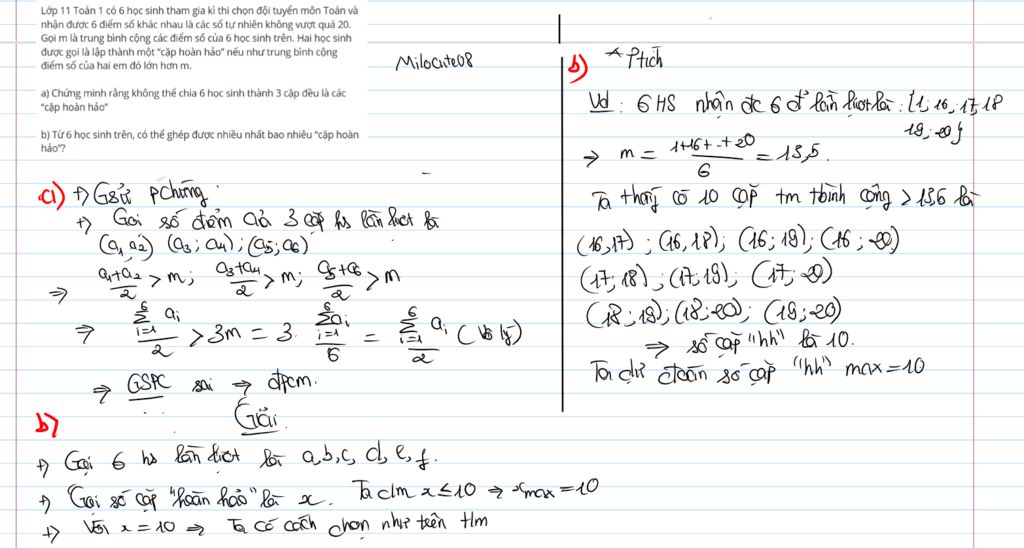 Lớp 11 Toán 1 có 6 học sinh tham gia kì thi chọn đội tuyển môn Toán và
nhận được 6 điểm số khác nhau là các số tự nhiên không vượt quá 20.
Gọi m là trung bình cộng các điểm số của 6 học sinh trên. Hai học sinh
được gọi là lập thành một "cặp hoàn hảo" nếu như trung bình cộng
điểm số của hai em đó lớn hơn m.
a) Chứng minh rằng không thể chia 6 học sinh thành 3 cặp đều là các
"cặp hoàn hảo"
b) Từ 6 học sinh trên, có thể ghép được nhiều nhất bao nhiêu "cặp hoàn
hảo"?
Milocute08
a) +) Gsử pchứng.
+) Gọi số điểm của 3 cặp hs lần lượt là
(a1, a2) (a3; a4); (a5; a6)
=> a1+a2/2 > m; a3+a4/2 > m; a5+a6/2 > m
=> ∑_{i=1}^{6} ai / 2 > 3m = 3. ∑_{i=1}^{6} ai / 6 = ∑_{i=1}^{6} ai / 2 (Vô lý)
=> GSPC sai → đpcm.
b) * Ptích
Vd: 6 HS nhận đc 6 đ' lần lượt là: {1; 16; 17; 18
19; 20}
=> m = 1+16+...+20 / 6 = 13,5.
Ta thấy có 10 cặp tm tbình cộng > 13,5 là
(16,17); (16,18); (16; 19); (16; 20)
(17; 18); (17; 19); (17; 20)
(18; 19); (18; 20); (19; 20)
=> số cặp "hh" là 10.
Ta dự đoán số cặp "hh" max = 10
b) Giải.
+) Gọi 6 hs lần lượt là a, b, c, d, e, f.
+) Gọi số cặp "hoàn hảo" là x. Ta c/m x ≤ 10 => xmax = 10
+) Với x = 10 => Ta có cách chọn như trên t/m